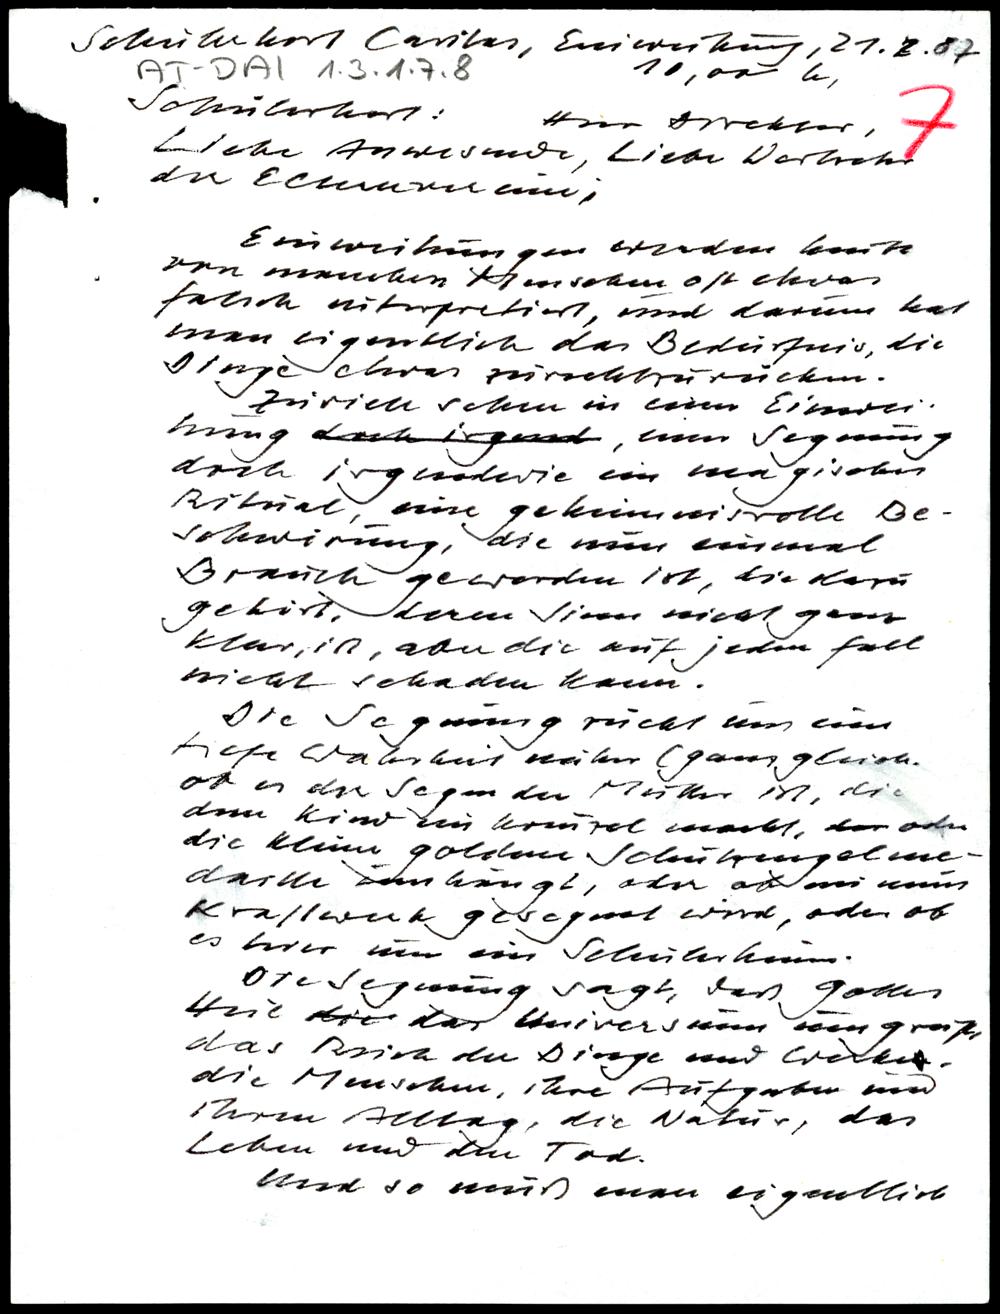 Schülerhort Caritas, Einweihung, 21.2.87
AT-DAI 1.3.1.7.8 10,00 h,
Schülerhort: Herr Direktor, 7
Liebe Anwesende, Liebe
der
Einweihungen werden heute
von manchen Menschen oft etwas
falsch interpretiert, und darum hat
man eigentlich das Bedürfnis, die
Dinge etwas zurechtzurücken.
Zuviele sehen in einer Einwei-
hung doch irgend, einer Segnung
doch irgendwie ein magisches
Ritual, eine geheimnisvolle Be-
schwörung, die nun einmal
Brauch geworden ist, die dazu
gehört, deren Sinn nicht ganz
klar ist, aber die auf jeden Fall
nicht schaden kann.
Die Segnung rückt uns eine
tiefe Wahrheit näher (ganz gleich
ob es der Segen der Mutter ist, die
dem Kind ein Kreuzel macht, der oder
die kleine goldene Schutzengelme-
daille umhängt, oder ob ein neues
Kraftwerk gesegnet wird, oder ob
es hier um ein Schülerheim.
Die Segnung sagt, daß Gottes
Heil die das Universum umgreift,
das Reich der Dinge und Werke,
die Menschen, ihre Aufgaben und
ihren Alltag, die Natur, das
Leben und den Tod.
Und so muß man eigentlich